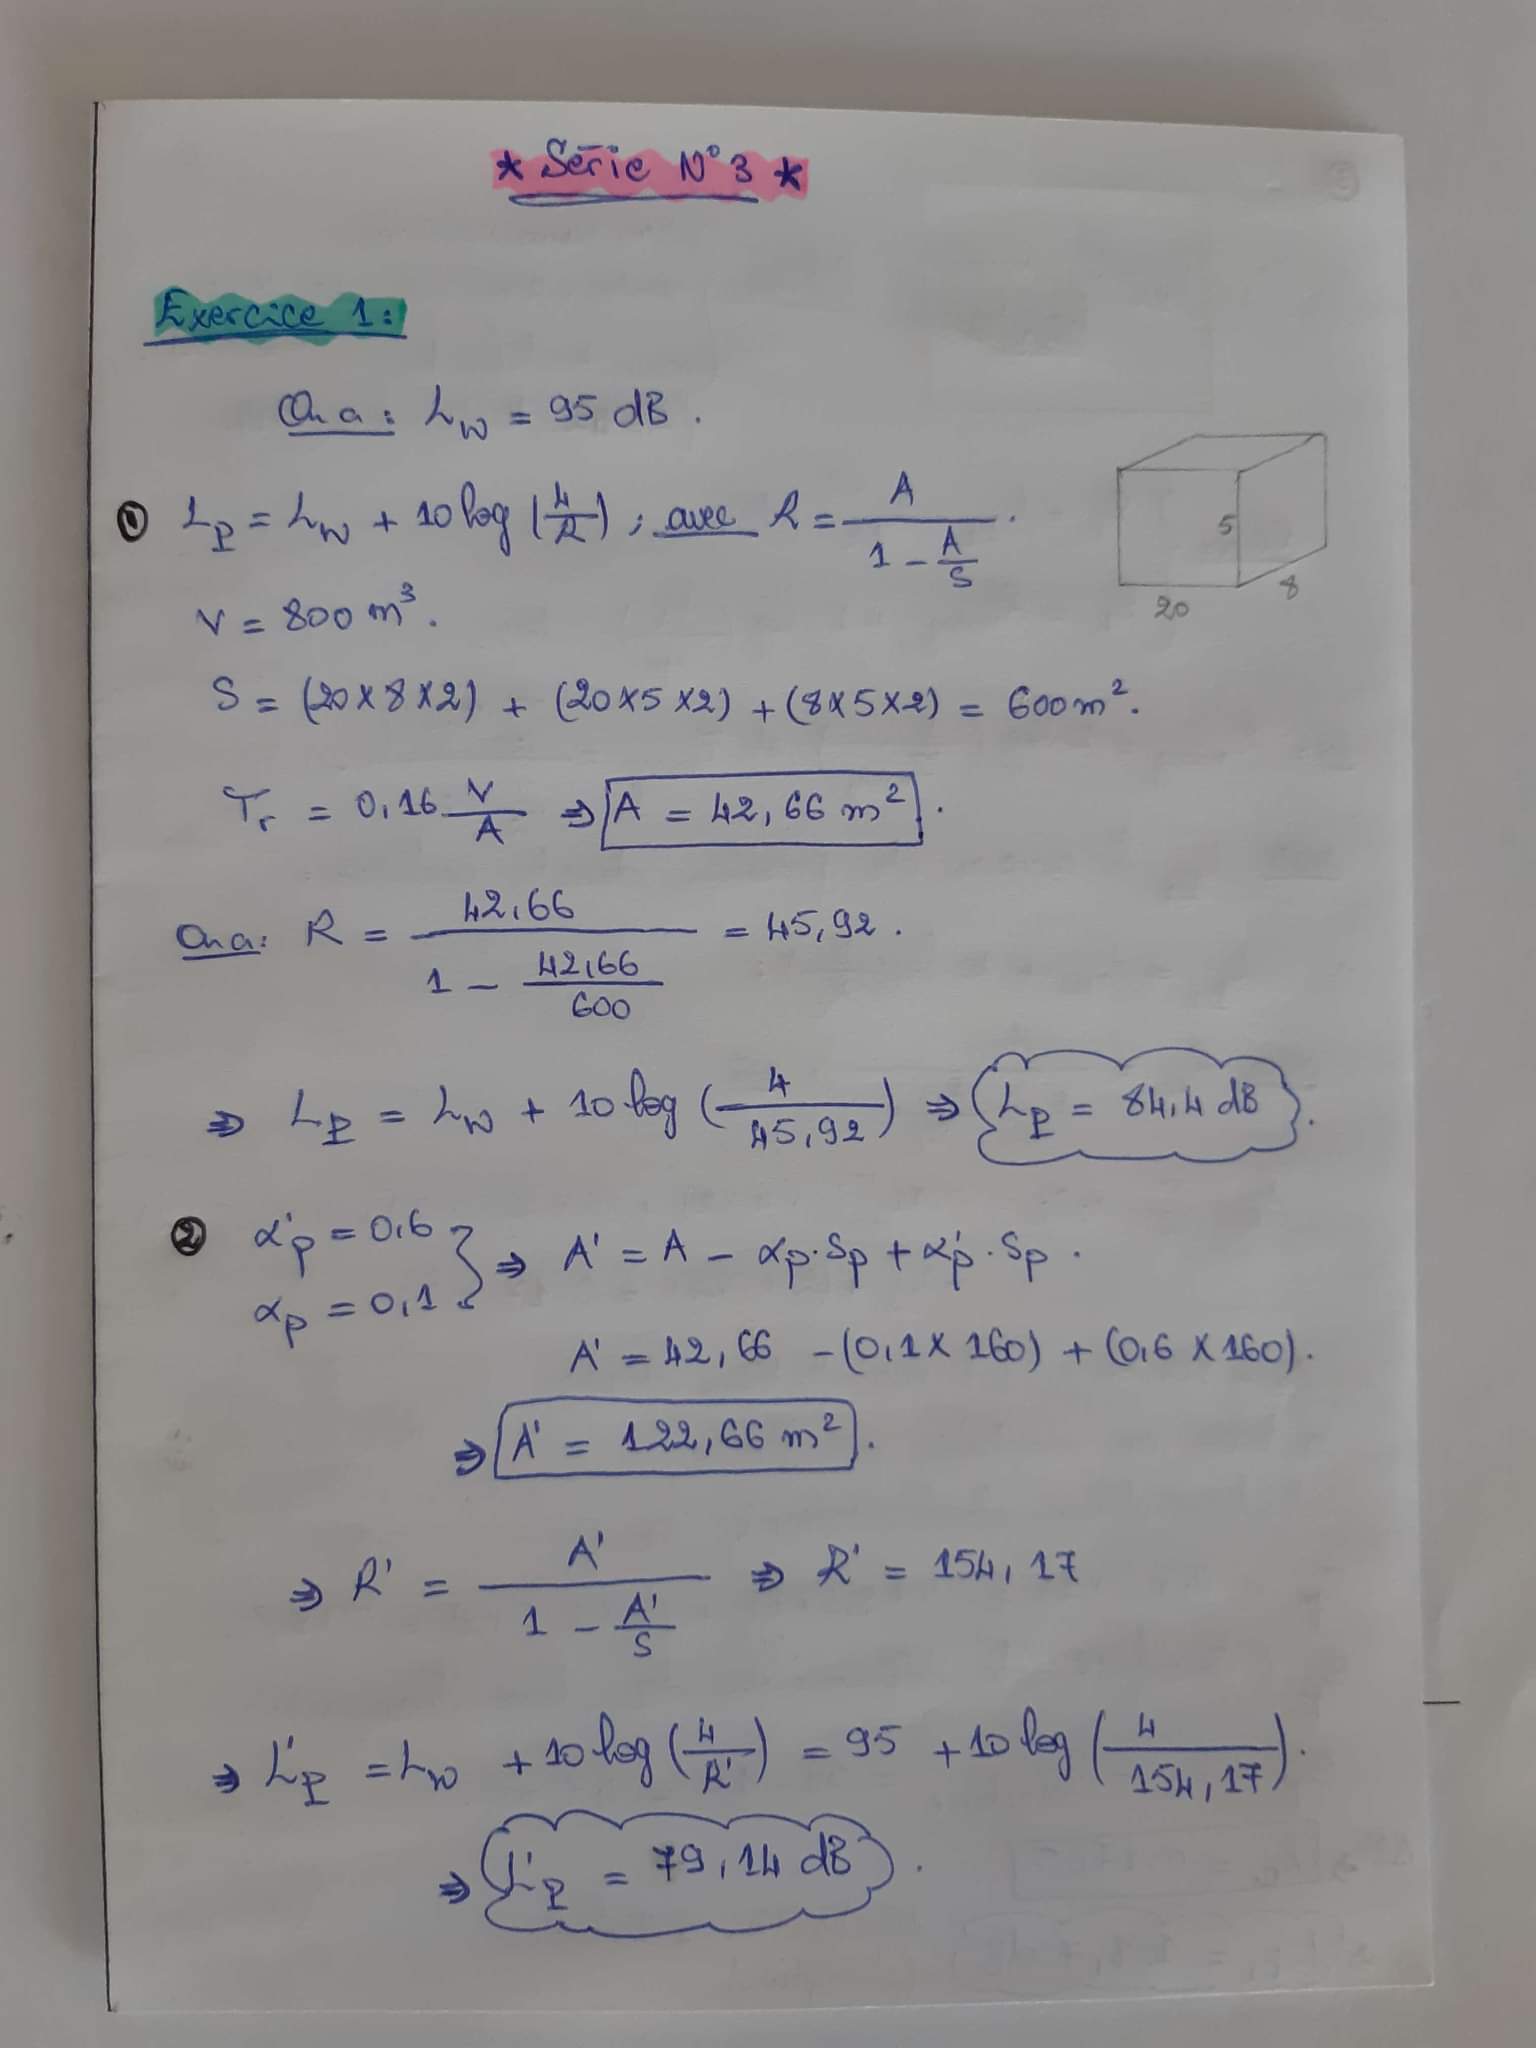 * Série N°3 *
Exercice 1:
On a: Lw = 95 dB.
① Lp = Lw + 10 log (4/R) ; avec R = A / (1 - A/S).
5
8
20
V = 800 m³.
S = (20x8x2) + (20x5x2) + (8x5x2) = 600 m².
Tr = 0,16 V/A ⇒ A = 42,66 m².
On a: R = 42,66 / (1 - 42,66/600) = 45,92.
⇒ Lp = Lw + 10 log (4/45,92) ⇒ Lp = 84,4 dB.
② α'p = 0,6
αp = 0,1 } ⇒ A' = A - αp.Sp + α'p.Sp.
A' = 42,66 - (0,1 x 160) + (0,6 x 160).
⇒ A' = 122,66 m².
⇒ R' = A' / (1 - A'/S) ⇒ R' = 154,17
⇒ L'p = Lw + 10 log (4/R') = 95 + 10 log (4/154,17).
⇒ L'p = 79,14 dB.